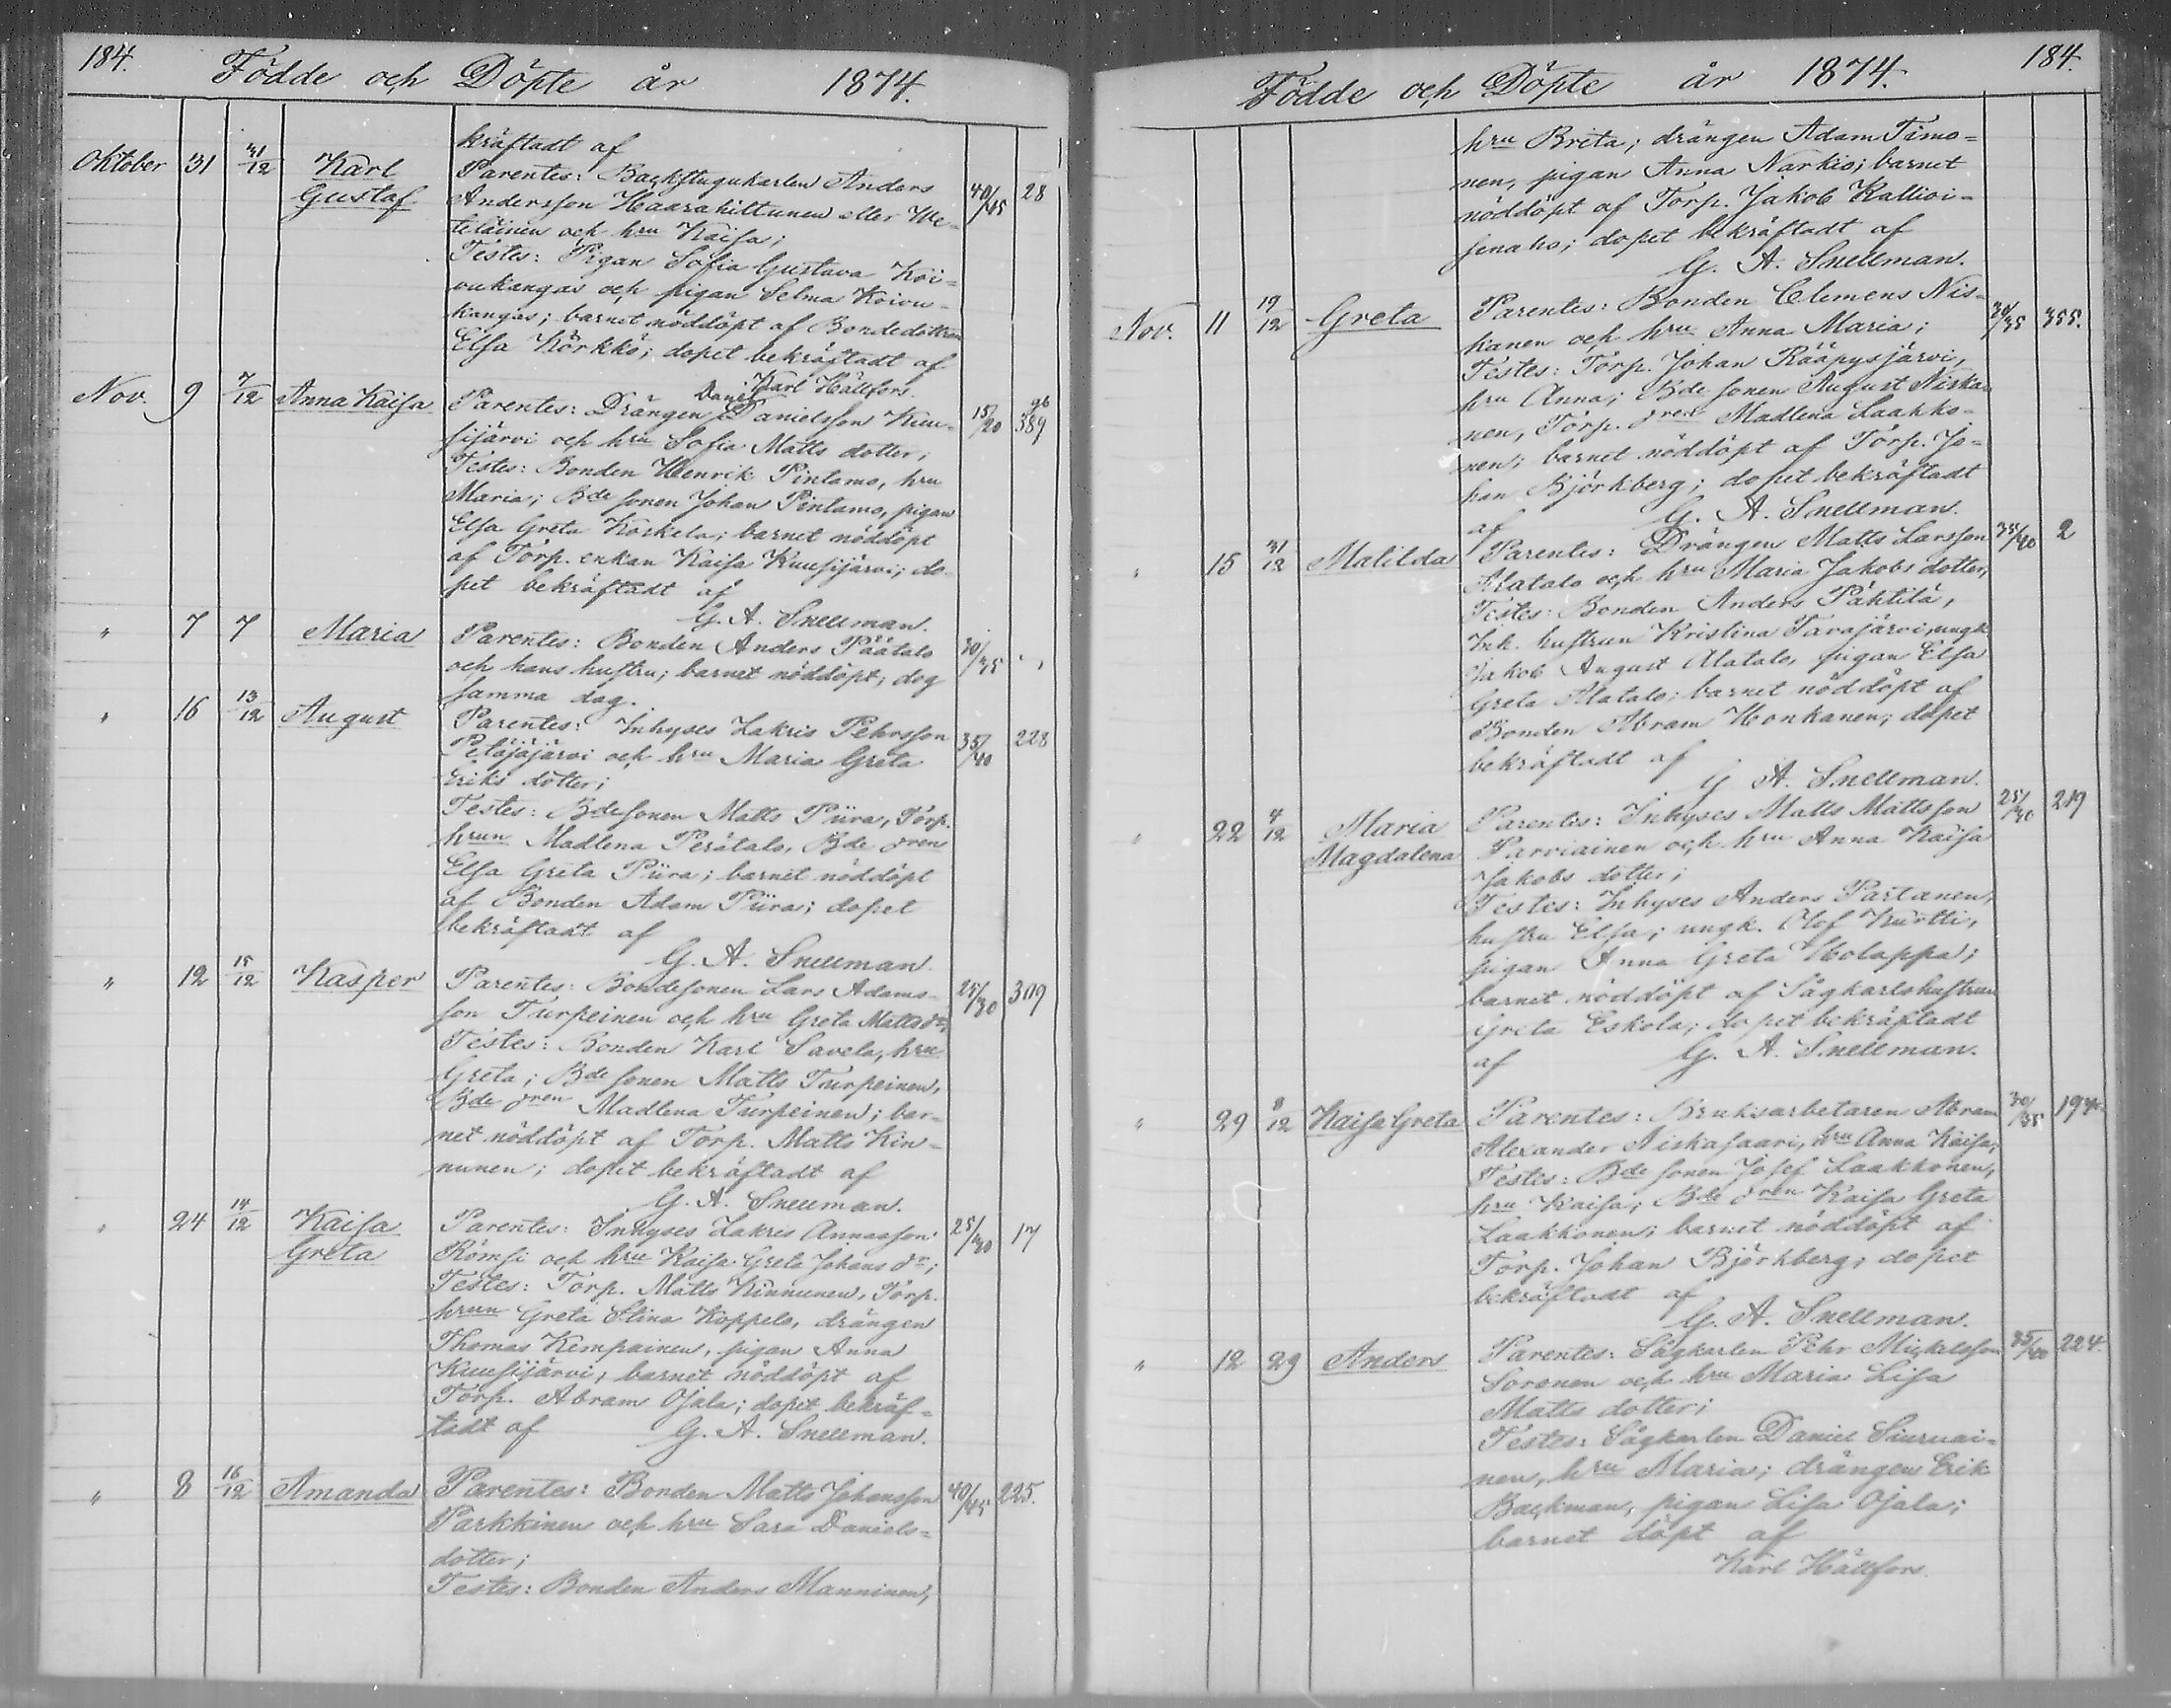 184.
Födde och Döpte år 1874.
kräftadt af
Oktober 31 31/12 Karl Gustaf
Parentes: Backstugukarlen Anders 40/45 28
Andersson Haarahiltunen eller We-
teläinen och hru Kaisa;
Testes: Pigan Sofia Gustava Koi-
vukangas och pigan Selma Koivu-
kangas; barnet nöddöpt af Bondedottren
Elsa Körkkö; dopet bekräftadt af
Karl Hällfors.
Nov. 9 7/12 Anna Kaisa
Daniel
Parentes: Drängen Danielsson Kuu- 15/20 96 389
sijärvi och hru Sofia Matts dotter;
Testes: Bonden Henrik Pintamo, hru
Maria; Bde sonen Johan Pintamo, pigan
Elsa Greta Koskela; barnet nöddöpt
af Torp. enkan Kaisa Kuusijärvi; do-
pet bekräftadt af
G. A. Snellman.
" 7 7 Maria
Parentes: Bonden Anders Päätalo 30/35
och hans hustru; barnet nöddöpt; dog
samma dag.
" 16 13/12 August
Parentes: Inhyses Zakris Pehrsson 35/40 228
Petäjäjärvi och hru Maria Greta
Eriks dotter;
Testes: Bdesonen Matts Piira, Torp.
hrun Madlena Perätalo, Bde dren
Elsa Greta Piira; barnet nöddöpt
af Bonden Adam Piira; dopet
bekräftadt af
G. A. Snellman.
" 12 15/12 Kasper
Parentes: Bondesonen Lars Adams- 25/30 309
son Turpeinen och hru Greta Matts dr;
Testes: Bonden Karl Savela, hru
Greta; Bde sonen Matts Turpeinen,
Bde dren Madlena Turpeinen; bar-
net nöddöpt af Torp. Matts Kin-
nunen; dopet bekräftadt af
G. A. Snellman.
" 24 14/12 Kaisa Greta
Parentes: Inhyses Zakris Annasson 25/30 17
Römsi och hru Kaisa Greta Johans dr;
Testes: Torp. Matts Kinnunen, Torp.
hrun Greta Stina Koppelo, drängen
Thomas Kempainen, pigan Anna
Kuusijärvi; barnet nöddöpt af
Torp. Abram Ojala; dopet bekräf-
tadt af G. A. Snellman.
" 8 16/12 Amanda
Parentes: Bonden Matts Johansson 40/45 225.
Parkkinen och hru Sara Daniels-
dotter;
Testes: Bonden Anders Manninen,
184.
Födde och Döpte år 1874.
hru Brita; drängen Adam Timo-
nen, pigan Anna Narkio; barnet
nöddöpt af Torp. Jakob Kallioi-
senaho; dopet bekräftadt af
G. A. Snellman.
Nov. 11 19/12 Greta
Parentes: Bonden Clemens Nis- 30/35 355.
kanen och hru Anna Maria;
Testes: Torp. Johan Rääpysjärvi,
hru Anna; Bde sonen August Niska-
nen, Torp. dren Madlena Laakko-
nen; barnet nöddöpt af Torp. Jo-
han Björkberg; dopet bekräftadt
af G. A. Snellman.
" 15 31/12 Matilda
Parentes: Drängen Matts Larsson 35/40 2
Alatalo och hru Maria Jakobs dotter;
Testes: Bonden Anders Pähtilä,
Inh. hustrun Kristina Tavajärvi, ungk.
Jakob August Alatalo, pigan Elsa
Greta Alatalo; barnet nöddöpt af
Bonden Abram Honkanen; dopet
bekräftadt af
G. A. Snellman.
" 22 4/12 Maria Magdalena
Parentes: Inhyses Matts Mattsson 25/30 219
Parviainen och hru Anna Kaisa
Jakobs dotter;
Testes: Inhyses Anders Partanen,
hustru Elsa; ungk. Olof Kurtti,
pigan Anna Greta Holappa;
barnet nöddöpt af Sågkarlshustrun
Greta Eskola; dopet bekräftadt
af G. A. Snellman.
" 29 8/12 Kaisa Greta
Parentes: Bruksarbetaren Abram 30/35
Alexander Niskasaari, hru Anna Kaisa;
Testes: Bde sonen Josef Laakkonen,
hru Kaisa; Bde dren Kaisa Greta
Laakkonen; barnet nöddöpt af
Torp. Johan Björkberg; dopet
bekräftadt af
G. A. Snellman.
" 12 29 Anders
Parentes: Sågkarlen Pehr Mickelsson 35/40 224.
Soronen och hru Maria Lisa
Matts dotter;
Testes: Sågkarlen Daniel Siuruai-
nen, hru Maria; drängen Erik
Backman, pigan Lisa Ojala;
barnet döpt af
Karl Hällfors.